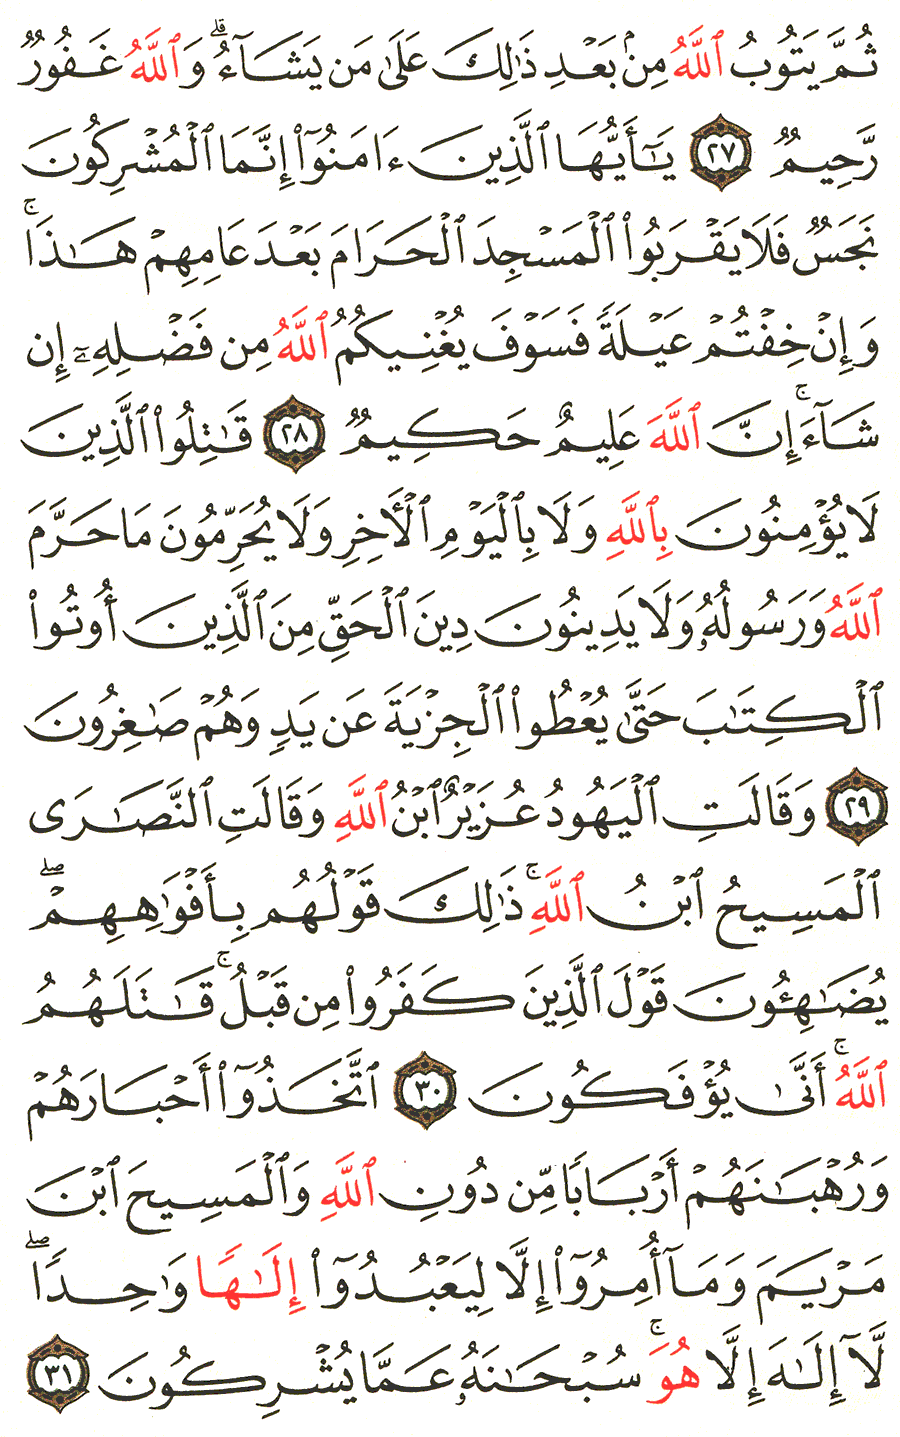 ثُمَّ يَتُوبُ ٱللَّهُ مِنۢ بَعْدِ ذَٰلِكَ عَلَىٰ مَن يَشَآءُ ۗ وَٱللَّهُ غَفُورٌ
رَّحِيمٌ ٢٧ يَـٰٓأَيُّهَا ٱلَّذِينَ ءَامَنُوٓا۟ إِنَّمَا ٱلْمُشْرِكُونَ
نَجَسٌ فَلَا يَقْرَبُوا۟ ٱلْمَسْجِدَ ٱلْحَرَامَ بَعْدَ عَامِهِمْ هَـٰذَا ۚ
وَإِنْ خِفْتُمْ عَيْلَةً فَسَوْفَ يُغْنِيكُمُ ٱللَّهُ مِن فَضْلِهِۦٓ إِن
شَآءَ ۚ إِنَّ ٱللَّهَ عَلِيمٌ حَكِيمٌ ٢٨ قَـٰتِلُوا۟ ٱلَّذِينَ
لَا يُؤْمِنُونَ بِٱللَّهِ وَلَا بِٱلْيَوْمِ ٱلْـَٔاخِرِ وَلَا يُحَرِّمُونَ مَا حَرَّمَ
ٱللَّهُ وَرَسُولُهُۥ وَلَا يَدِينُونَ دِينَ ٱلْحَقِّ مِنَ ٱلَّذِينَ أُوتُوا۟
ٱلْكِتَـٰبَ حَتَّىٰ يُعْطُوا۟ ٱلْجِزْيَةَ عَن يَدٍ وَهُمْ صَـٰغِرُونَ
٢٩ وَقَالَتِ ٱلْيَهُودُ عُزَيْرٌ ٱبْنُ ٱللَّهِ وَقَالَتِ ٱلنَّصَـٰرَى
ٱلْمَسِيحُ ٱبْنُ ٱللَّهِ ۚ ذَٰلِكَ قَوْلُهُم بِأَفْوَٰهِهِمْ ۖ
يُضَـٰهِـُٔونَ قَوْلَ ٱلَّذِينَ كَفَرُوا۟ مِن قَبْلُ ۚ قَـٰتَلَهُمُ
ٱللَّهُ ۚ أَنَّىٰ يُؤْفَكُونَ ٣٠ ٱتَّخَذُوٓا۟ أَحْبَارَهُمْ
وَرُهْبَـٰنَهُمْ أَرْبَابًا مِّن دُونِ ٱللَّهِ وَٱلْمَسِيحَ ٱبْنَ
مَرْيَمَ وَمَآ أُمِرُوٓا۟ إِلَّا لِيَعْبُدُوٓا۟ إِلَـٰهًا وَٰحِدًا ۖ
لَّآ إِلَـٰهَ إِلَّا هُوَ ۚ سُبْحَـٰنَهُۥ عَمَّا يُشْرِكُونَ ٣١